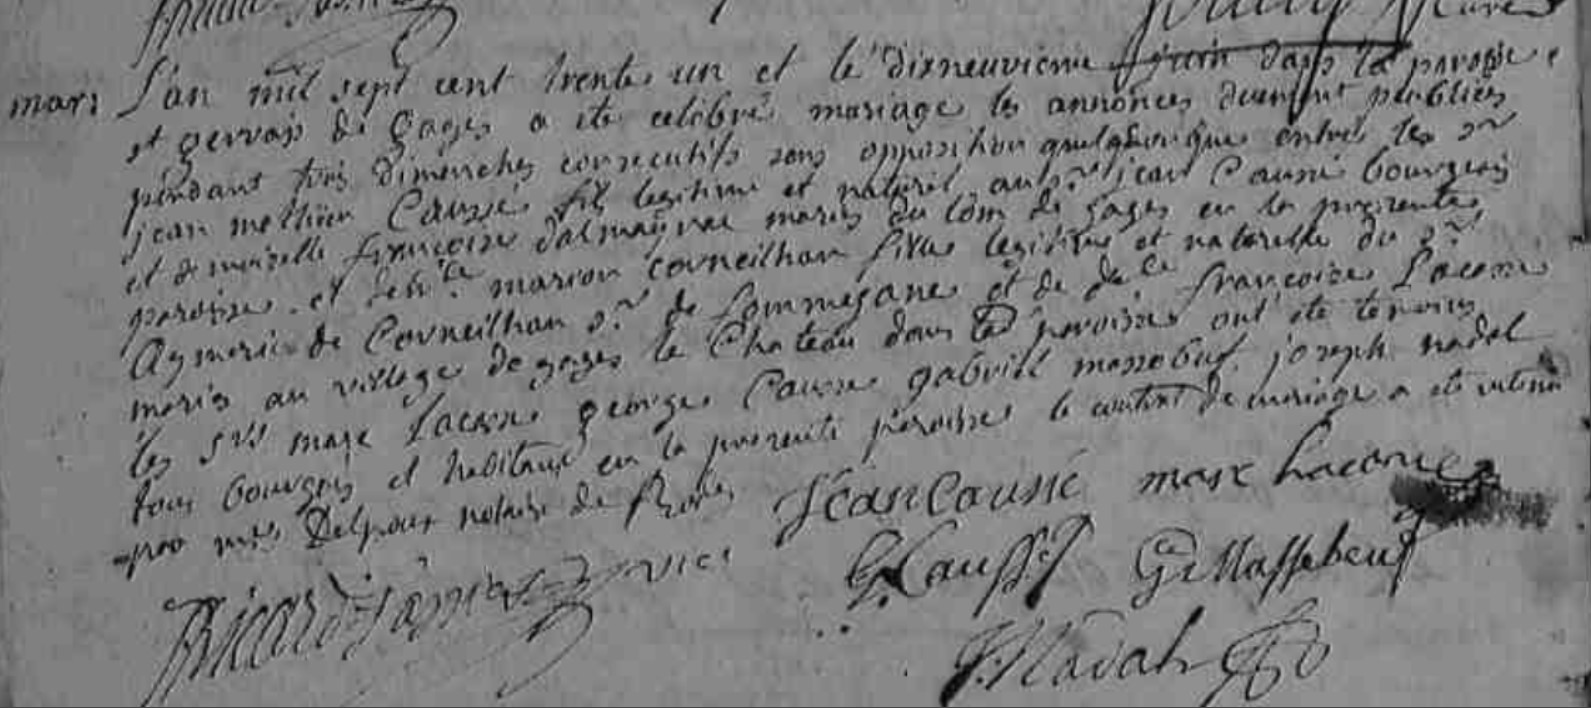 mari
L'an mil sept cent trente un et le dixneuvieme juin dans la paroisse
st gervais de Gages a ete celebré mariage les annonces duement publiees
pendant trois dimenches consecutifs sans opposition quelquonque entre les sr
jean mathieu Caussé fils legitime et naturel au sr jean Caussé bourgeois
et demoizelle françoise dalmayrac mariés du lom de gages en la presente
paroisse et dem.lle marion corneilhan fille legitime et naturelle du sr
Aymeric de Corneilhan sr de sommezane et de de.lle françoise Lacone
mariés au village de gages le Chateau dans la paroisse ont ete temoins
les srs marc Lacone george Causse gabriel massabuf joseph nadal
tous bourgois et habitans en la presente paroisse le contrat de mariage a ete retenu
par mre Delpoux notaire de Rodes
Jean Caussé marc Lacone
Ricard vic.
G. Causse G. Massebeuf
J. Nadal